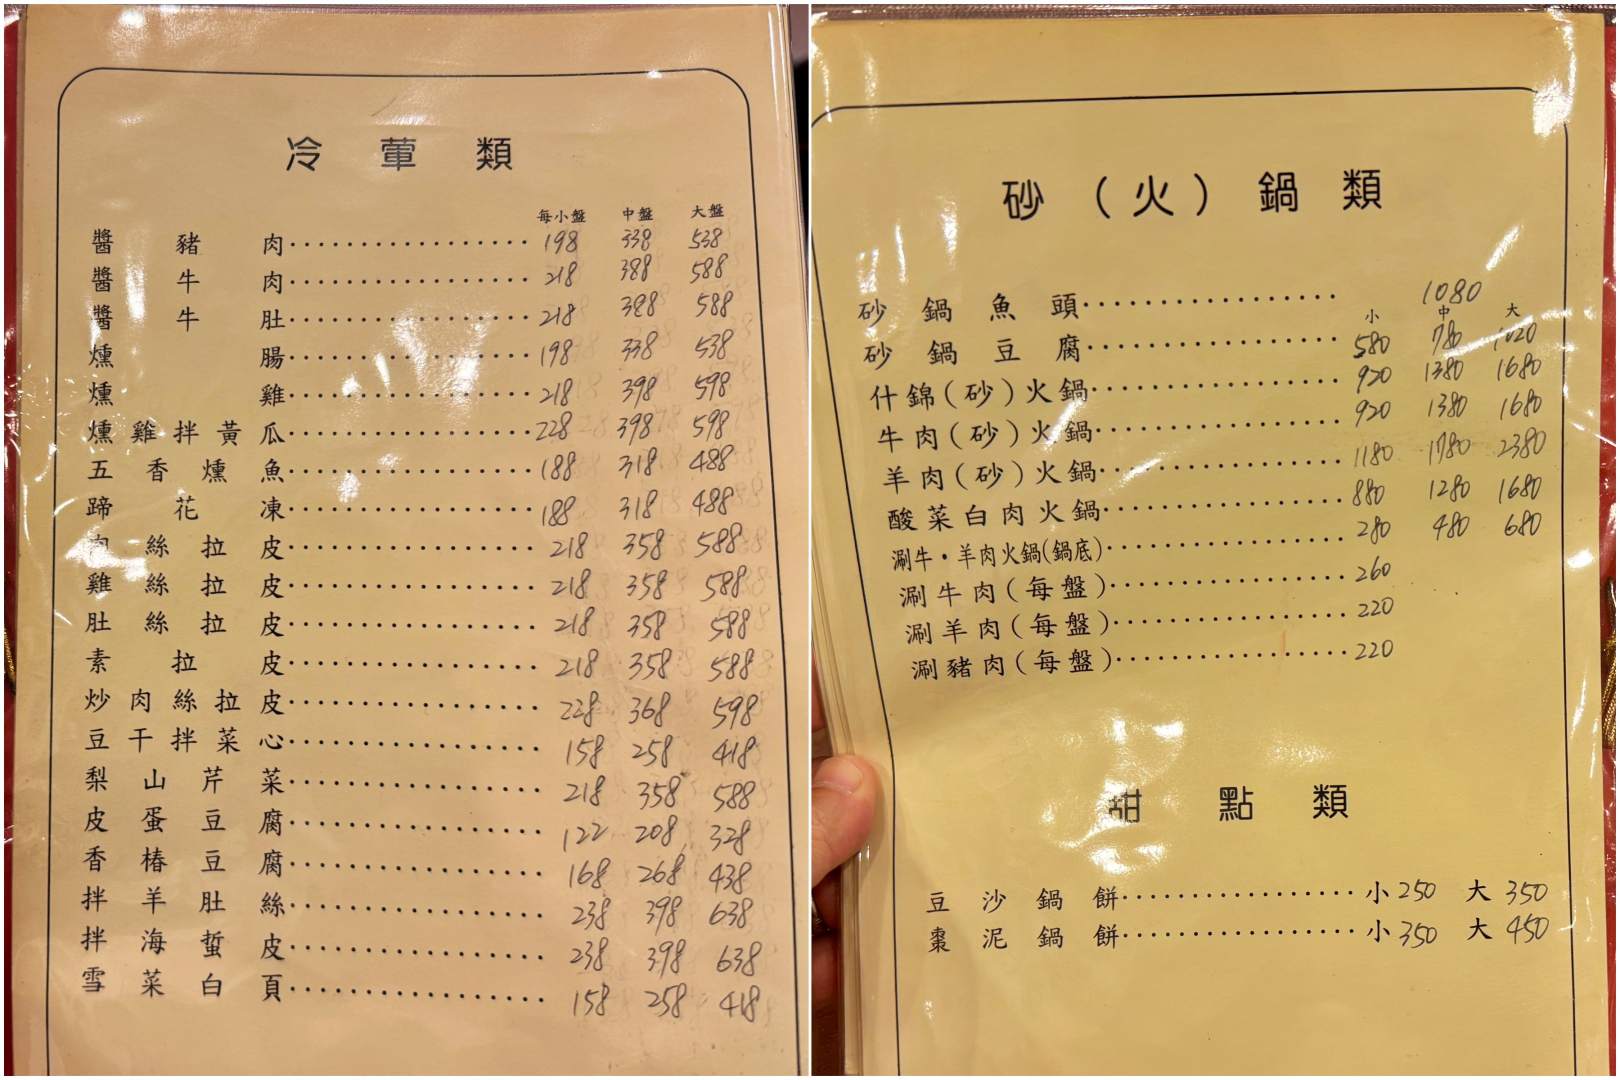 冷葷類
每小盤 中盤 大盤
醬豬肉 198 338 538
醬牛肉 218 388 588
醬牛肚 218 388 588
燻腸 198 338 538
燻雞 218 398 598
燻雞拌黃瓜 228 398 598
五香燻魚 188 318 488
蹄花凍 188 318 488
肉絲拉皮 218 358 588
雞絲拉皮 218 358 588
肚絲拉皮 218 358 588
素拉皮 218 358 588
炒肉絲拉皮 228 368 598
豆干拌菜心 158 258 418
梨山芹菜 218 358 588
皮蛋豆腐 122 208 328
香椿豆腐 168 268 438
拌羊肚絲 238 398 638
拌海蜇皮 238 398 638
雪菜白頁 158 258 418
砂(火)鍋類
砂鍋魚頭 1080
小 中 大
砂鍋豆腐 580 780 1020
什錦(砂)火鍋 920 1380 1680
牛肉(砂)火鍋 920 1380 1680
羊肉(砂)火鍋 1180 1780 2380
酸菜白肉火鍋 880 1280 1680
涮牛·羊肉火鍋(鍋底) 280 480 680
涮牛肉(每盤) 260
涮羊肉(每盤) 220
涮豬肉(每盤) 220
甜點類
豆沙鍋餅 小250 大350
棗泥鍋餅 小350 大450